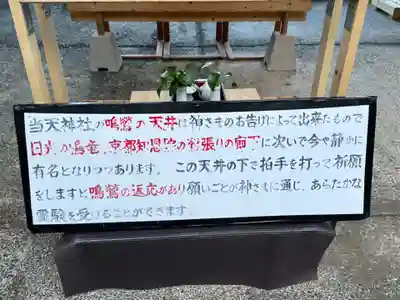 当天神社の鳴鶯の天井は神さまのお告げによって出来たもので
日光の鳴竜、京都知恩院の鶯張りの廊下に次いで今や静かに
有名となりつつあります。この天井の下で拍手を打って祈願
をしますと鳴鶯の返応があり願いごとが神さまに通じ、あらたかな
霊験を受けることができます。